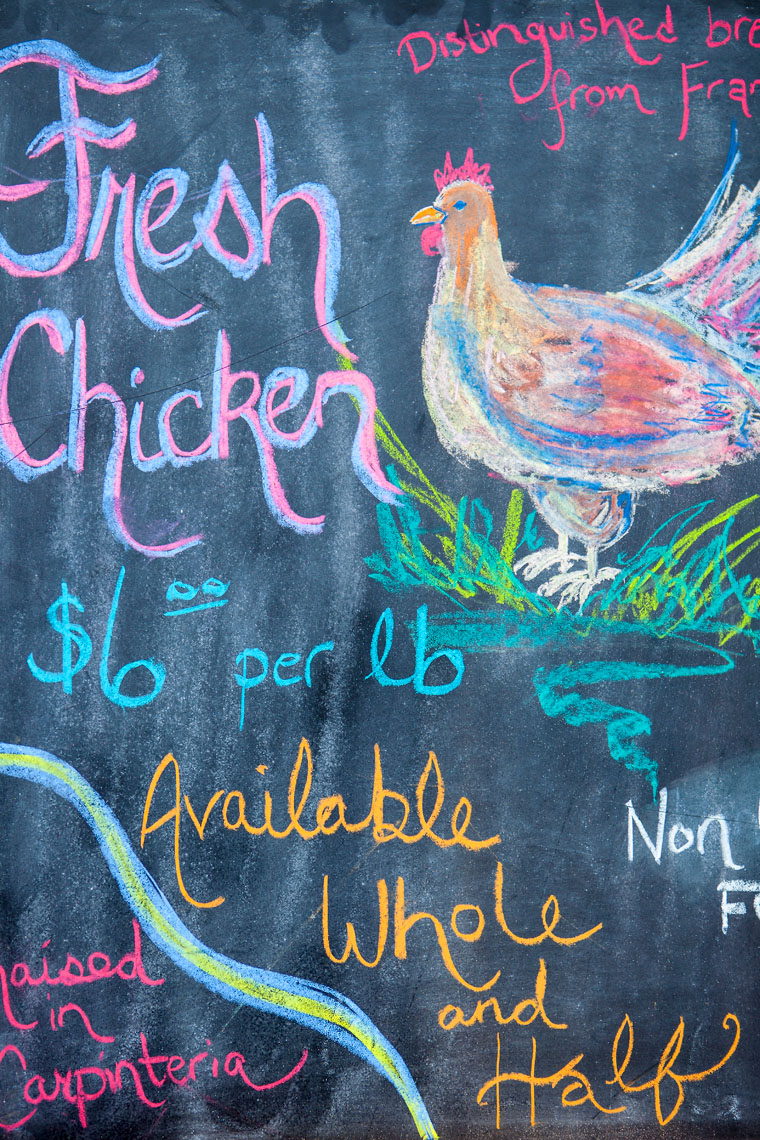 Distinguished bre
from Fran
Fresh
Chicken
$6.00 per lb
Available
Whole
and
Half
Non
raised
in
Carpinteria